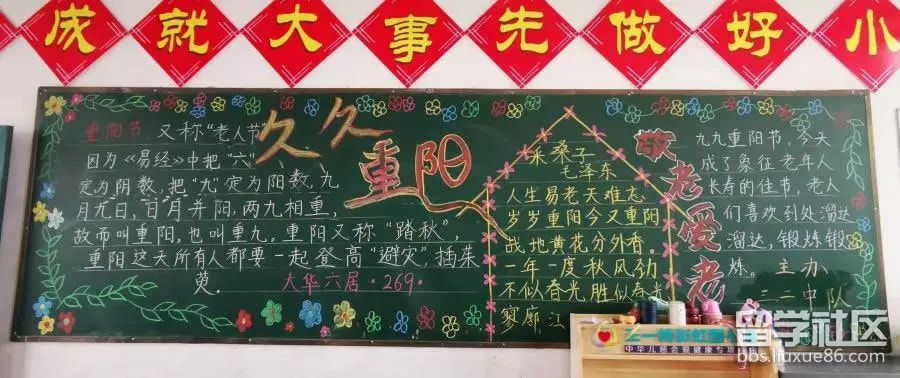 成就大事先做好小
重阳节,又称“老人节”
因为《易经》中把“六”
定为阴数,把“九”定为阳数,九
月九日,日月并阳,两九相重,
故而叫重阳,也叫重九。重阳又称“踏秋”,
重阳这天所有人都要一起登高“避灾”,插茱
萸。
大华六居·269·
久久
重阳
采桑子
毛泽东
人生易老天难忘
岁岁重阳今又重阳
战地黄花分外香。
一年一度秋风劲
不似春光胜似春光
寥廓江
敬老爱老
九九重阳节,今天
成了象征老年人
长寿的佳节,老人
们喜欢到处溜达
溜达,锻炼锻
炼。 主办、
三二中队
中华儿慈会爱健康专项
留学社区
bbs.liuxue86.com